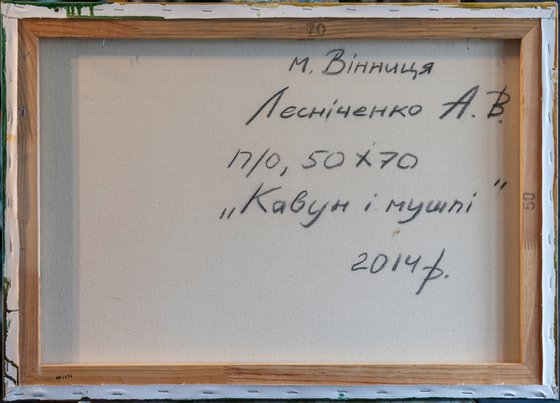 70
м. Вінниця
Лесніченко А. В.
п/о, 50 х 70
„Кавун і мушлі"
50
2014 р.